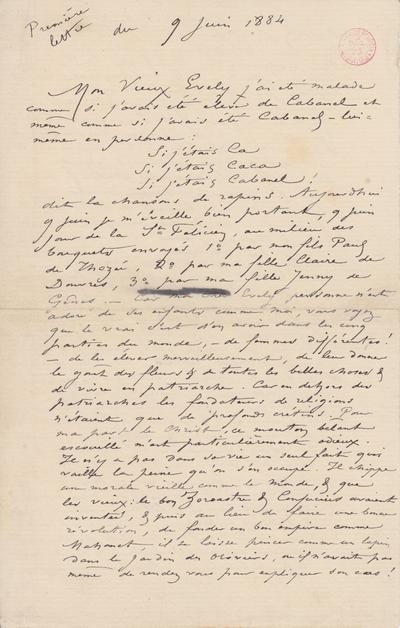 Première
lettre
du 9 juin 1884
Mon Vieux Evely j'ai été malade
comme si j'avais été élève de Cabanel et
même comme si j'avais été Cabanel - lui-
même en personne :
Si j'étais Ca
Si j'étais Caca
Si j'étais Cabanel !
dit la chanson de rapins. Aujourdhui
9 juin je m'éveille bien portant, 9 juin
jour de la St Félicien, au milieu des
bouquets envoyés 1o par mon fils Paul
de 2o par ma fille Claire de
Douvres, 3o par ma fille Jenny de
Car mon cher Evely personne n'est
adoré de ses enfants comme moi, vous voyez
que le vrai c'est d'en avoir dans les cinq
parties du monde, - de femmes différentes !
- de les élever merveilleusement, de leur donner
le goût des fleurs & de toutes les belles choses &
de vivre en patriarche. Car en dehors des
patriarches les fondateurs de religions
n'étaient que de profonds crétins. Pour
ma part le Christ, ce mouton bêlant
m'est particulièrement odieux.
Il n'y a pas dans sa vie un seul fait qui
vaille la peine qu'on s'en occupe. Il chippe
une morale vieille comme le monde, & que
les vieux : le bon Zoroastre & Confucius avaient
inventée, & puis au lieu de faire une bonne
révolution, de fonder un bon empire comme
Mahomet, il se laisse pincer comme un lapin
dans le jardin des Oliviers, où il n'avait pas
même de rendez vous pour expliquer son cas !